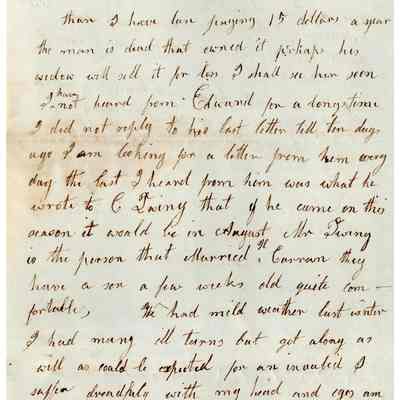 than I have ben paying 15 dollars a year
the man is dead that owned it perhaps his
widow will sell it for less I shall see her soon
I have not heard from Edward for a long time
I did not reply to his last letter till ten days
ago I am looking for a letter from him every
day the last I heard from him was what he
wrote to C Twing that if he came on this
season it would be in August Mr Twing
is the person that Married H. Curram they
have a son a few weeks old quite com-
fortable, We had mild weather last winter
I had many ill turns but got along as
well as could be expected for an invalid I
suffer dreadfuly with my head and eyes am